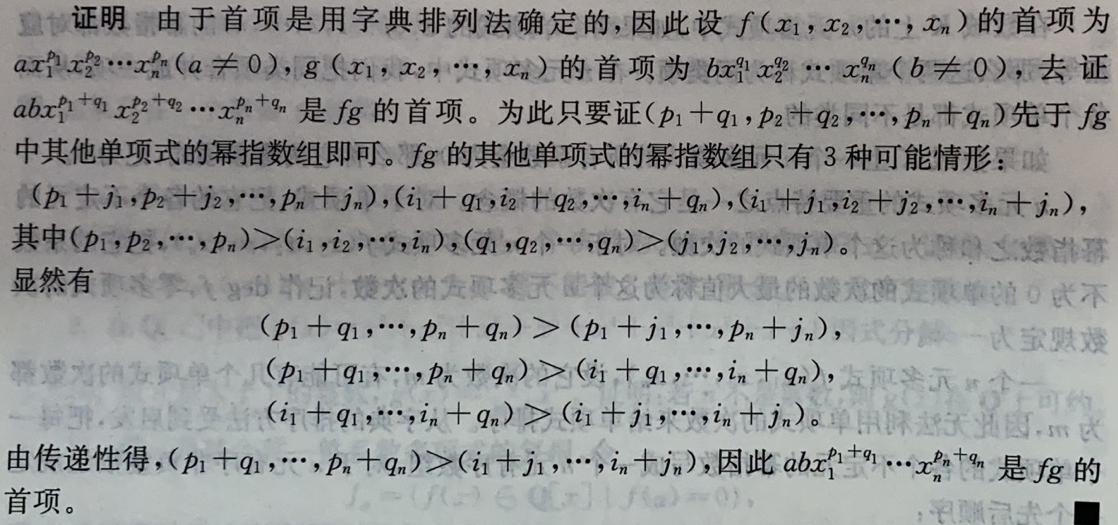 证明 由于首项是用字典排列法确定的,因此设 f(x₁,x₂,⋯,xₙ)的首项为
ax₁^{p₁}x₂^{p₂}⋯xₙ^{pₙ}(a≠0),g(x₁,x₂,⋯,xₙ)的首项为 bx₁^{q₁}x₂^{q₂}⋯xₙ^{qₙ}(b≠0),去证
abx₁^{p₁+q₁}x₂^{p₂+q₂}⋯xₙ^{pₙ+qₙ} 是 fg 的首项。为此只要证(p₁+q₁,p₂+q₂,⋯,pₙ+qₙ)先于 fg
中其他单项式的幂指数组即可。fg 的其他单项式的幂指数组只有 3 种可能情形:
(p₁+j₁,p₂+j₂,⋯,pₙ+jₙ),(i₁+q₁,i₂+q₂,⋯,iₙ+qₙ),(i₁+j₁,i₂+j₂,⋯,iₙ+jₙ),
其中(p₁,p₂,⋯,pₙ)>(i₁,i₂,⋯,iₙ),(q₁,q₂,⋯,qₙ)>(j₁,j₂,⋯,jₙ)。
显然有
(p₁+q₁,⋯,pₙ+qₙ)>(p₁+j₁,⋯,pₙ+jₙ),
(p₁+q₁,⋯,pₙ+qₙ)>(i₁+q₁,⋯,iₙ+qₙ),
(i₁+q₁,⋯,iₙ+qₙ)>(i₁+j₁,⋯,iₙ+jₙ)。
由传递性得,(p₁+q₁,⋯,pₙ+qₙ)>(i₁+j₁,⋯,iₙ+jₙ),因此 abx₁^{p₁+q₁}⋯xₙ^{pₙ+qₙ} 是 fg 的
首项。 ■